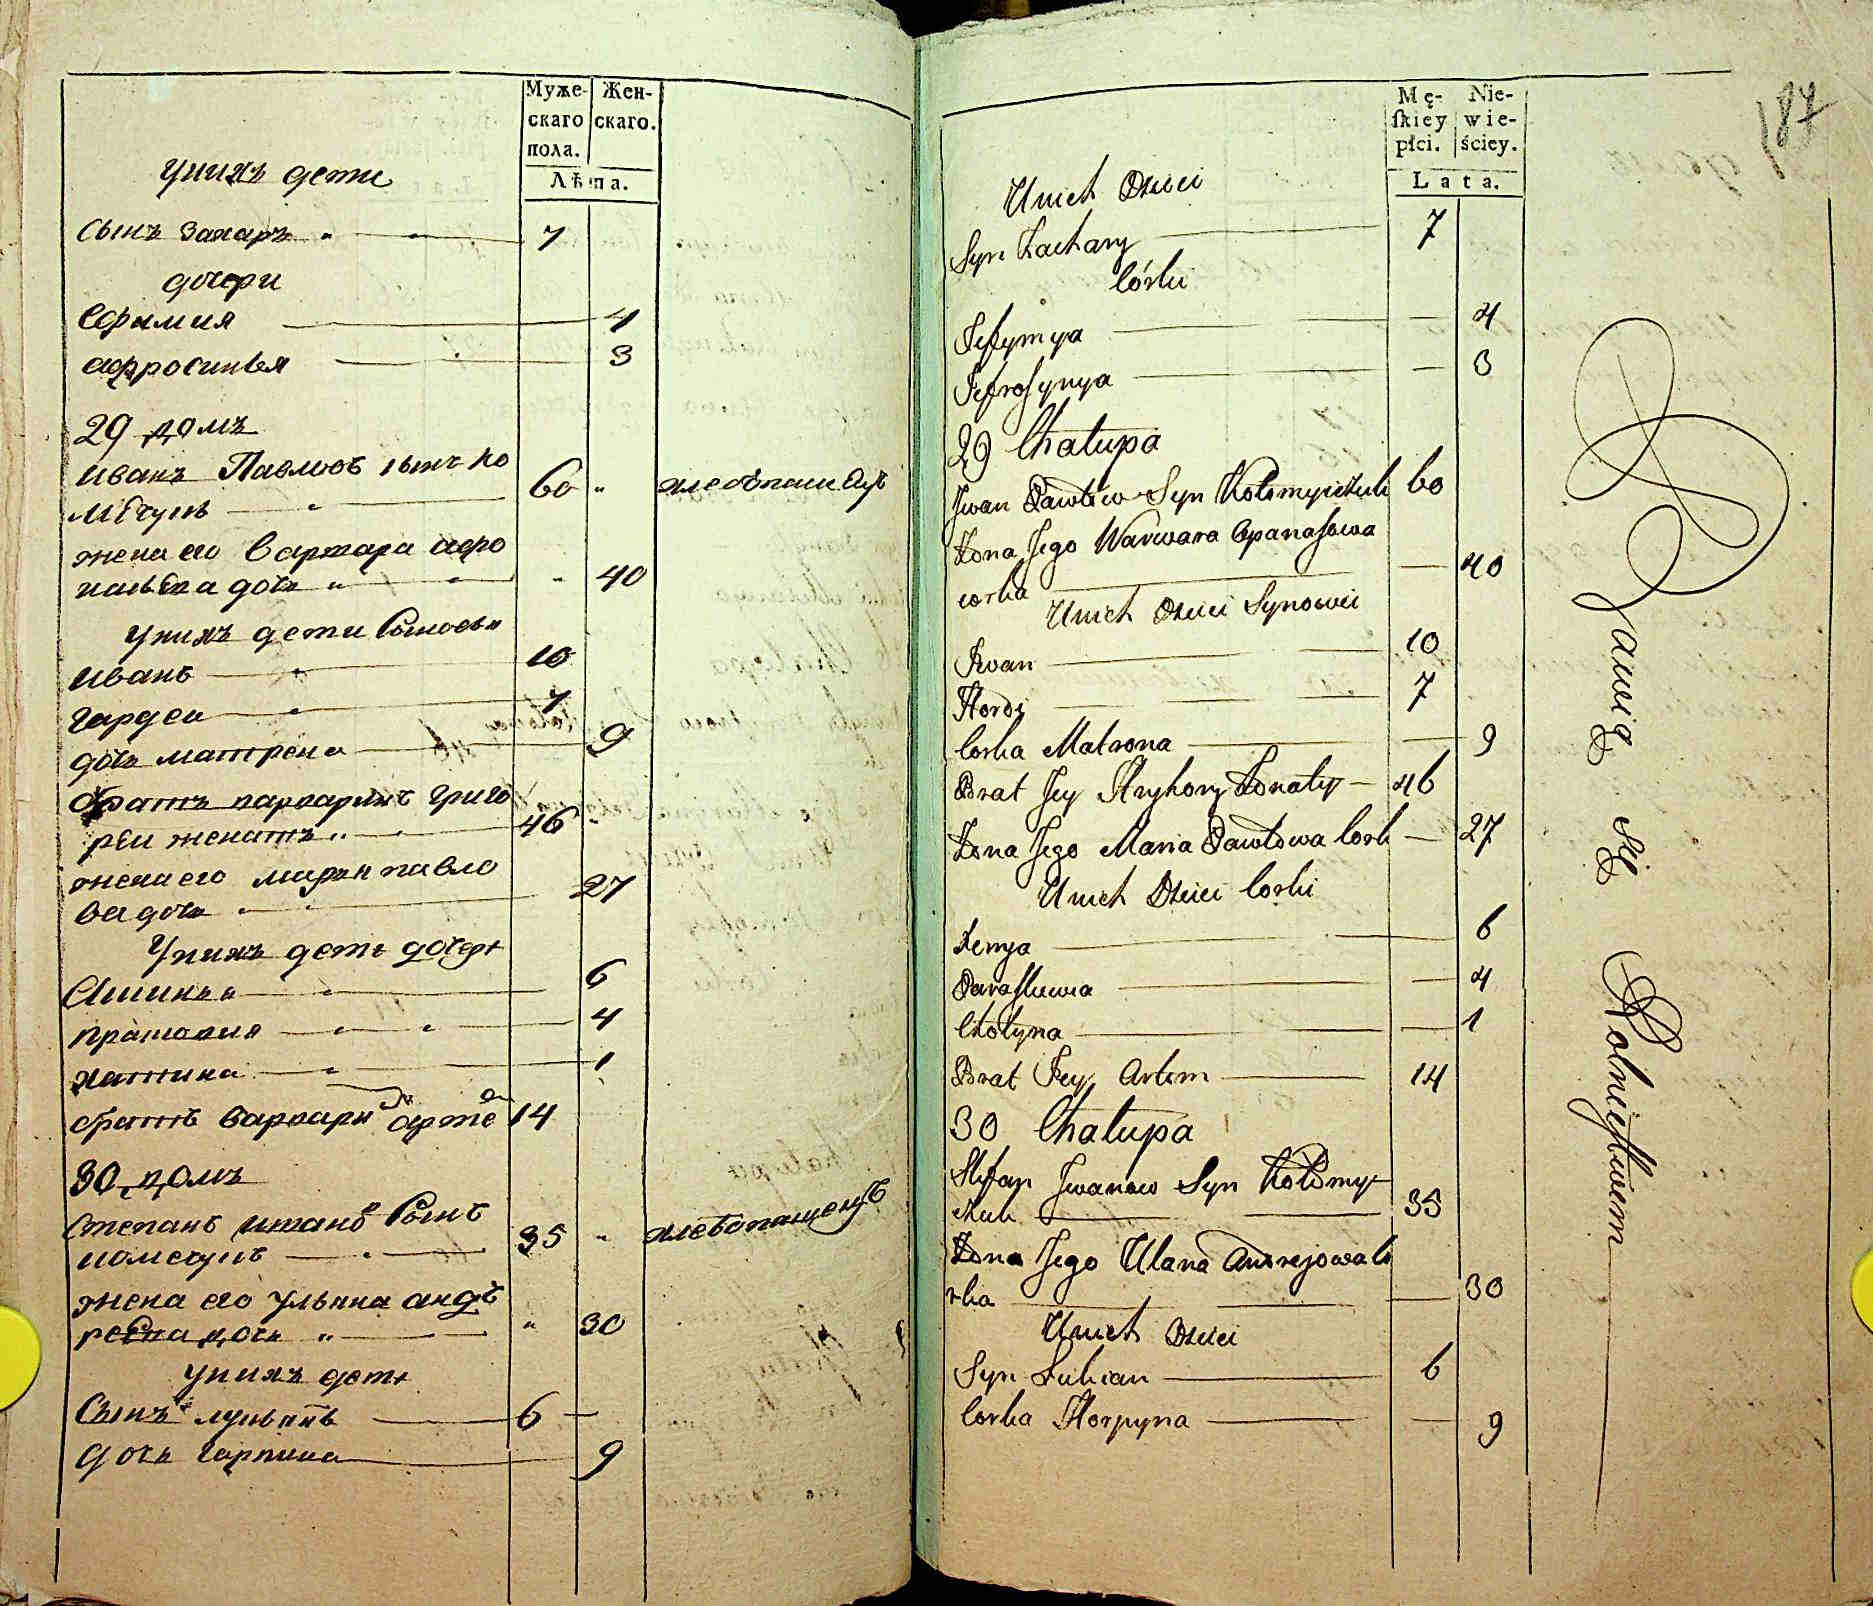 Муже-
скаго
пола.
Жен-
скаго.
Лѣта.
у нихъ дети
сынъ Захаръ 7
дочери
Ефимия 4
афросинья 3
29 домъ
иванъ Павловъ сынъ ко
ломеучукъ 60 хлебопашецъ
жена его варвара афо
насьева дочь 40
у нихъ дети Сыновья
иванъ 10
гардеи 7
дочь матрена 9
братъ варваринъ григо
реи женатъ 46
жена его мария павло
ва дочь 27
у нихъ дети дочери
Аксинья 6
прасковия 4
хатина 1
братъ варвары арте 14
30 домъ
Степанъ ивановъ Сынъ
коломеучукъ 35 хлебопашецъ
жена его ульяна анд
реева дочь 30
у нихъ дети
Сынъ лукьянъ 6
дочь гарпина 9
187
Mę-
skiey
płci.
Nie-
wie-
ściey.
Lata.
U nich Dzieci
Syn Zachary 7
Córki
Jefymya 4
Jefrosynya 3
29 Chałupa
Jwan Pawłow Syn Kołomyiczuk 60
Zona Jego Warwara Opanasowa
corka 40
U nich Dzieci Synowie
Jwan 10
Hordj 7
Corka Matrona 9
Brat Jey Hryhory Zonaty 46
Zona Jego Maria Pawłowa Cork 27
U nich Dzieci Corki
Xenya 6
Paraskewia 4
Chotyna 1
Brat Jey Artem 14
30 Chałupa
Stefan Jwanow Syn Kołomy-
iczuk 35
Zona Jego Ulana Andrejowa Co
rka 30
U nich Dzieci
Syn Lukian 6
Corka Horpyna 9
Bawią się Rolnictwem